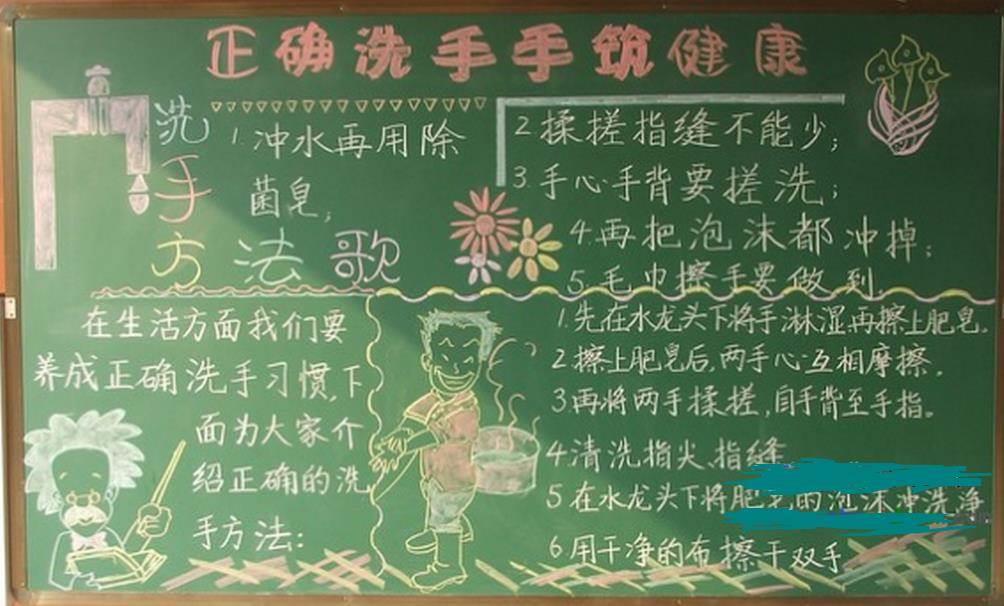 正确洗手手筑健康
洗手方法歌
1.冲水再用除
菌皂;
2.揉搓指缝不能少;
3.手心手背要搓洗;
4.再把泡沫都冲掉;
5.毛巾擦手要做到.
在生活方面我们要
养成正确洗手习惯,下
面为大家介
绍正确的洗
手方法:
1.先在水龙头下将手淋湿再擦上肥皂。
2擦上肥皂后,两手心互相摩擦。
3再将两手揉搓,自手背至手指。
4清洗指尖、指缝
5在水龙头下将肥皂的泡沫冲洗净
6用干净的布擦干双手